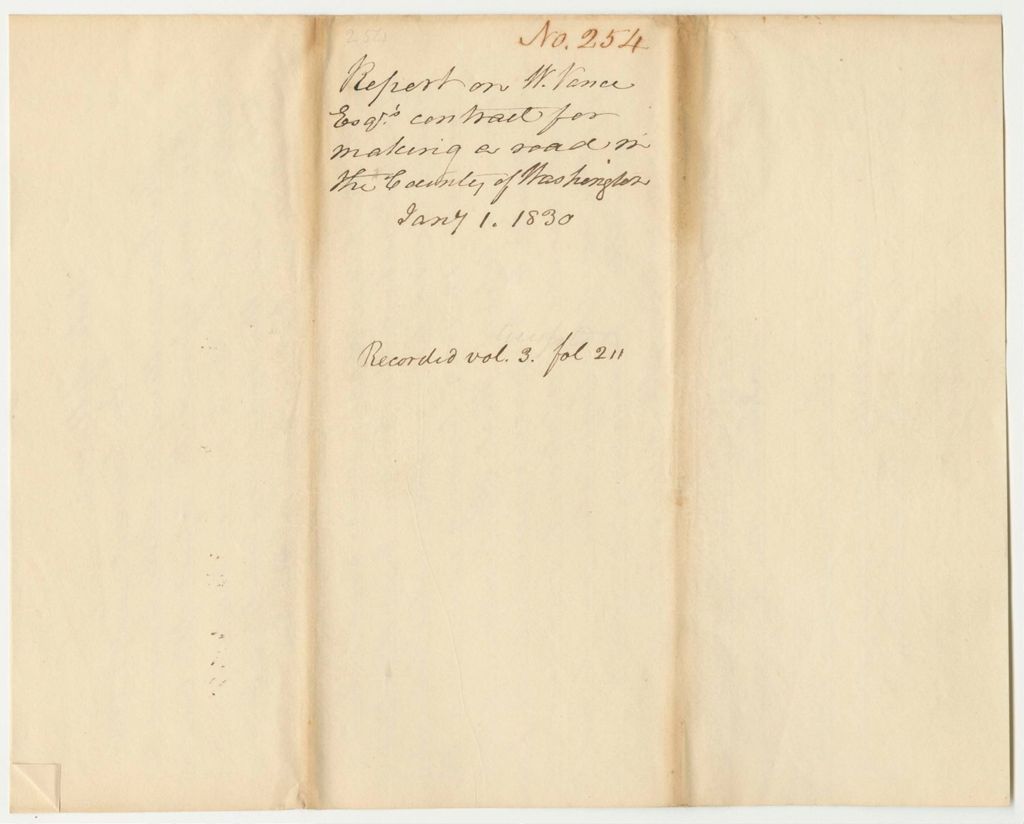 254
No. 254
Report on W. Vance
Esqr's contract for
making a road in
the County of Washington
Jany 1. 1830
Recorded vol. 3. fol 211